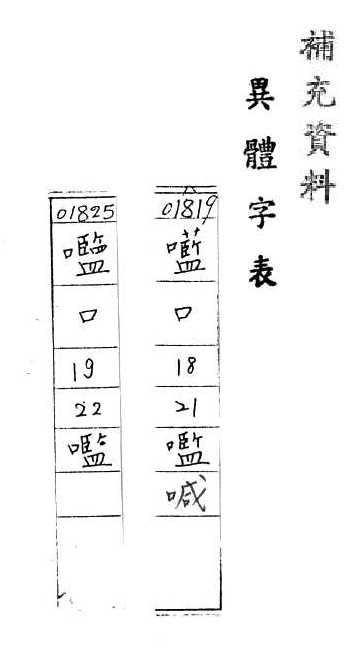 補充資料
異體字表
01819
口
18
21
嚂
喊
01825
口
19
22
嚂